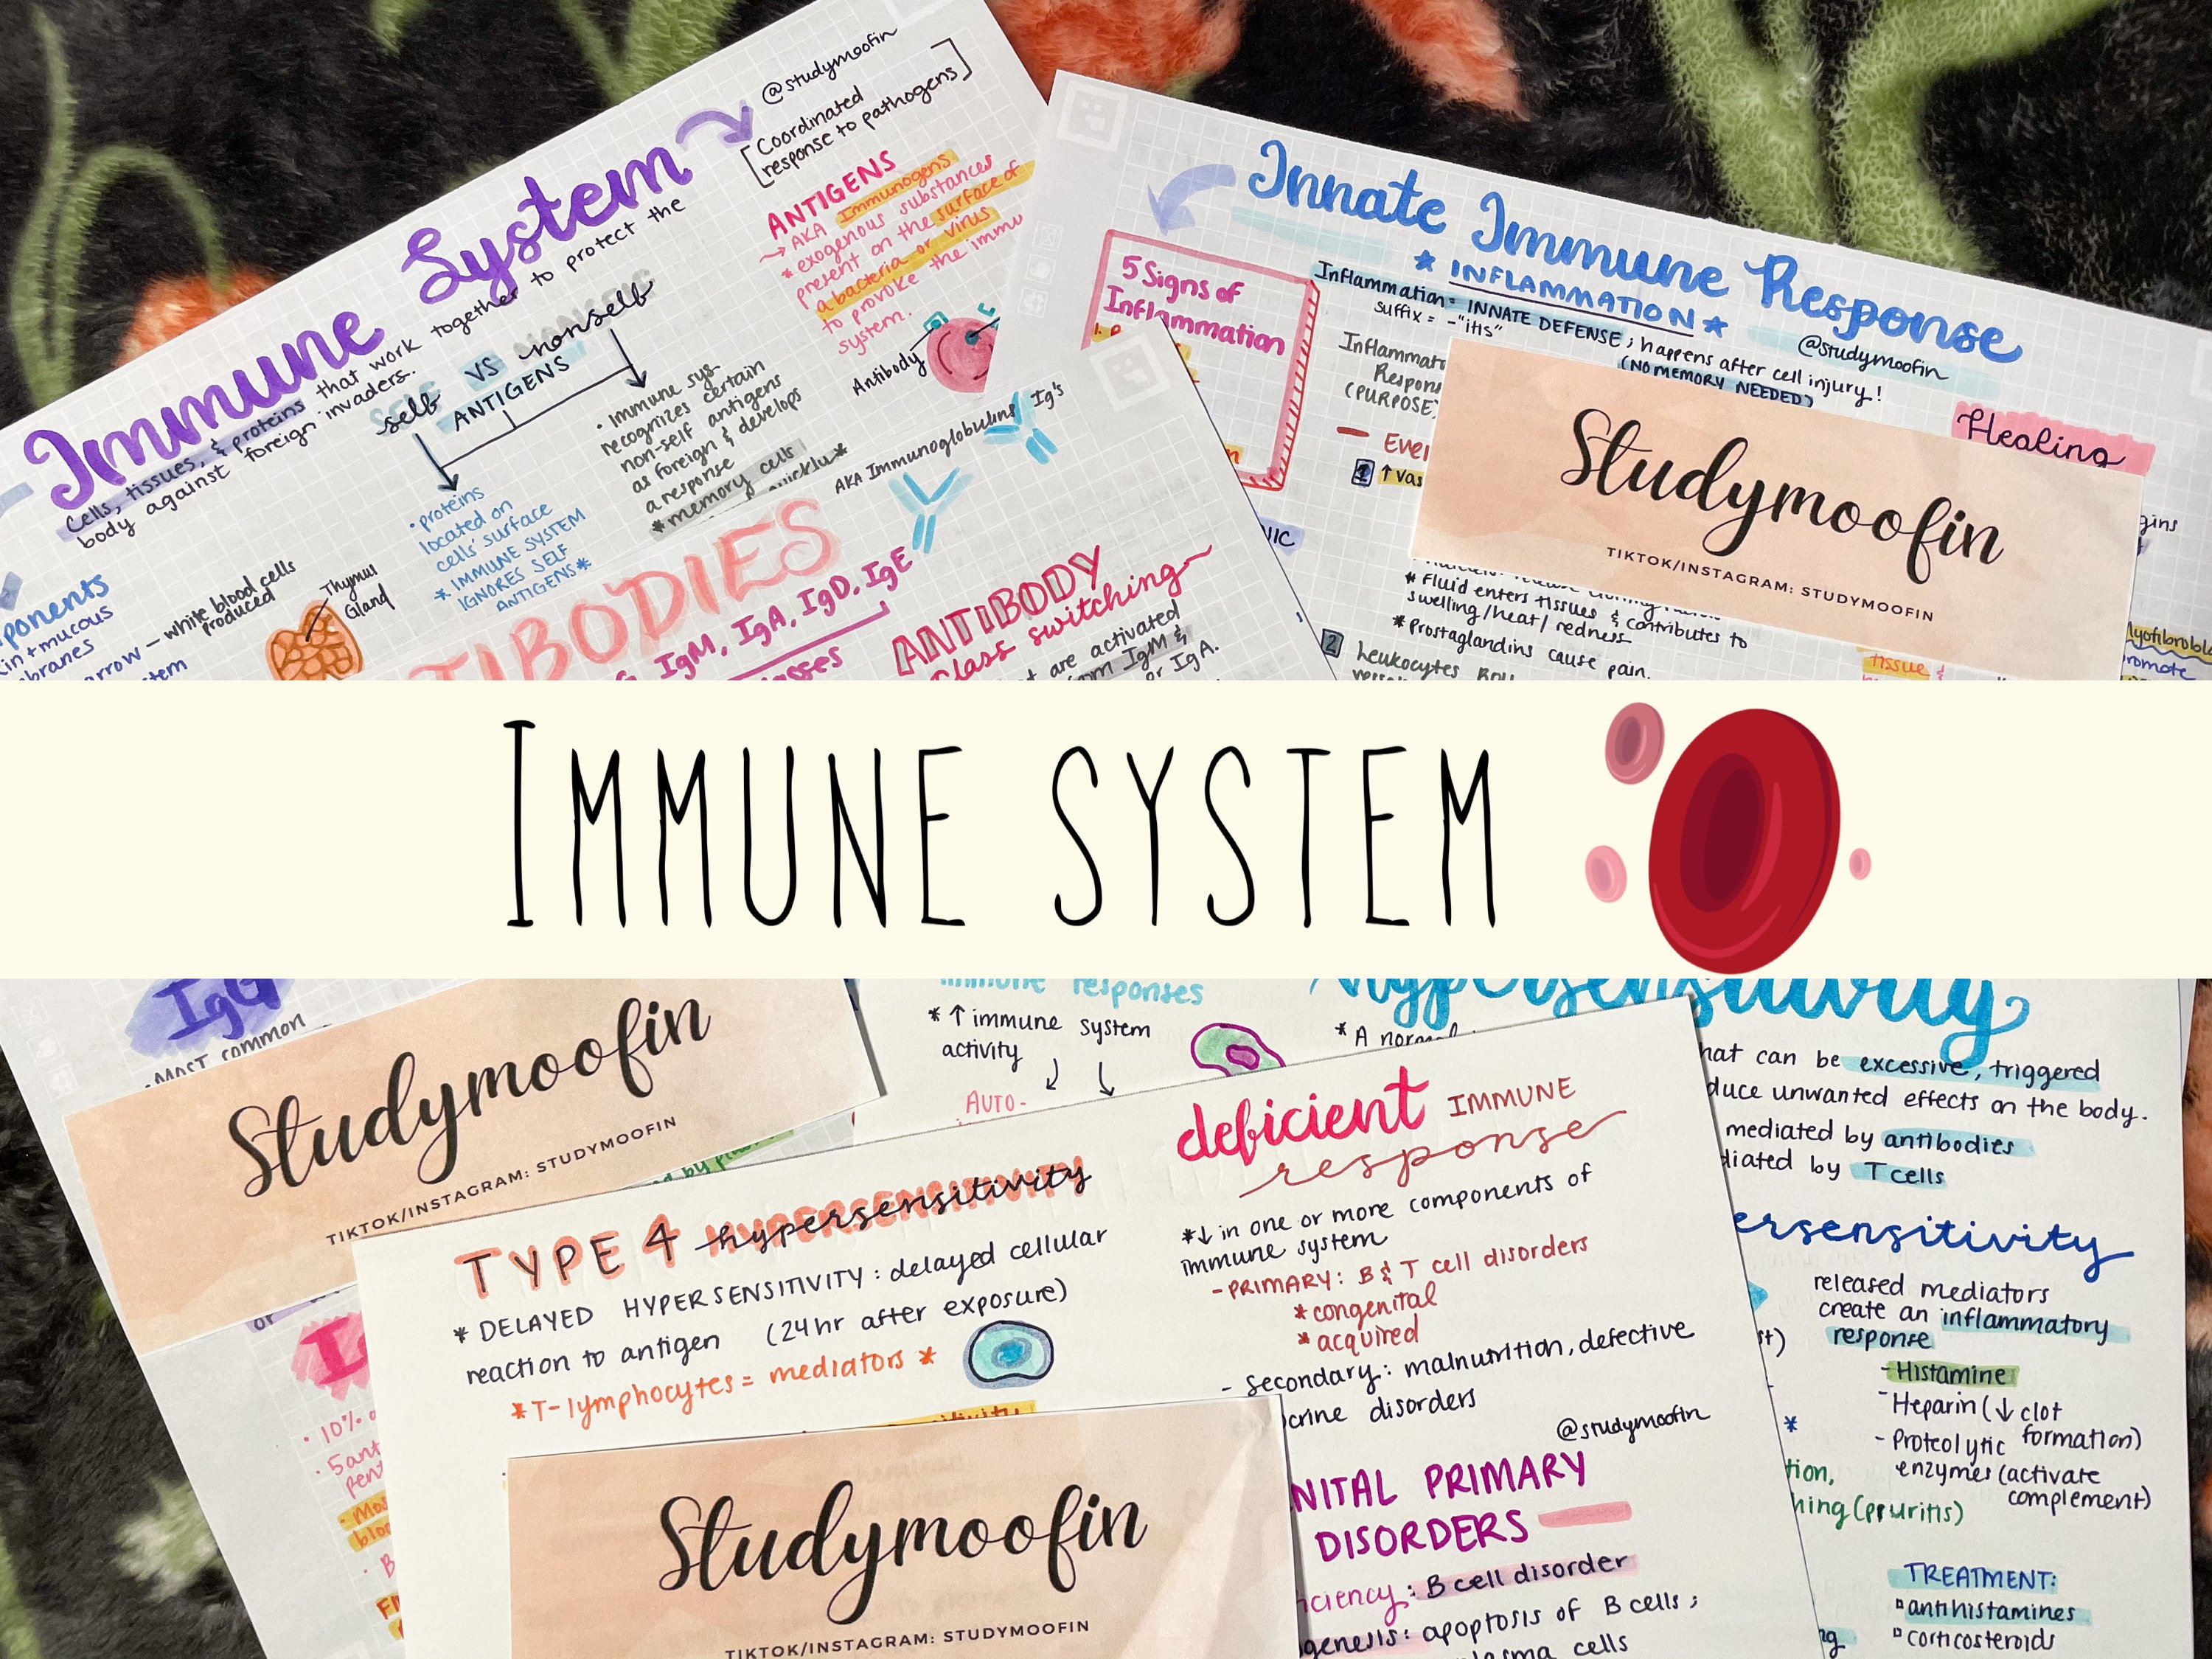 @studymoofin
Immune System
[Coordinated
response to pathogens]
Cells, tissues, & proteins that work together to protect the
body against foreign invaders.
self vs nonself
ANTIGENS
• proteins
located on
cells' surface
* IMMUNE SYSTEM
IGNORES SELF
ANTIGENS*
• Immune sys-
recognizes certain
non-self antigens
as foreign & develops
a response
*memory cells
quickly*
ANTIGENS
→ AKA Immunogens
* exogenous substances
present on the surface of
a bacteria or virus
to provoke the immu
system.
Antibody
white blood cells
produced
Thymus
Gland
AKA Immunoglobulins / Ig's
TIBODIES
IgM, IgA, IgD, IgE
ANTIBODY
class switching
are activated
IgM &
or IgA.
Innate Immune Response
* INFLAMMATION *
@studymoofin
5 Signs of
Inflammation
Inflammation= INNATE DEFENSE; happens after cell injury!
suffix = -"itis"
(NO MEMORY NEEDED)
(PURPOSE)
Healing
Studymoofin
TIKTOK/INSTAGRAM: STUDYMOOFIN
* Fluid enters tissues & contributes to
swelling/heat/redness
* Prostaglandins cause pain.
2 Leukocytes
tissue &
IMMUNE SYSTEM
IgG
• MOST common
Studymoofin
TIKTOK/INSTAGRAM: STUDYMOOFIN
immune responses
* ↑ immune system
activity
AUTO-
hypersensitivity
* A normal
hat can be excessive, triggered
duce unwanted effects on the body.
mediated by antibodies
diated by T cells
ersensitivity
released mediators
create an inflammatory
response
- Histamine
- Heparin (↓ clot
formation)
- Proteolytic
enzymes (activate
complement)
hing (pruritis)
TREATMENT:
antihistamines
corticosteroids
TYPE 4 hypersensitivity
* DELAYED HYPERSENSITIVITY: delayed cellular
reaction to antigen (24hr after exposure)
*T-lymphocytes = mediators *
deficient IMMUNE
response
*↓ in one or more components of
immune system
- PRIMARY: B & T cell disorders
* congenital
* acquired
- Secondary: malnutrition, defective
crine disorders
@studymoofin
NITAL PRIMARY
DISORDERS
iciency: B cell disorder
genesis: apoptosis of B cells;
lasma cells
Studymoofin
TIKTOK/INSTAGRAM: STUDYMOOFIN